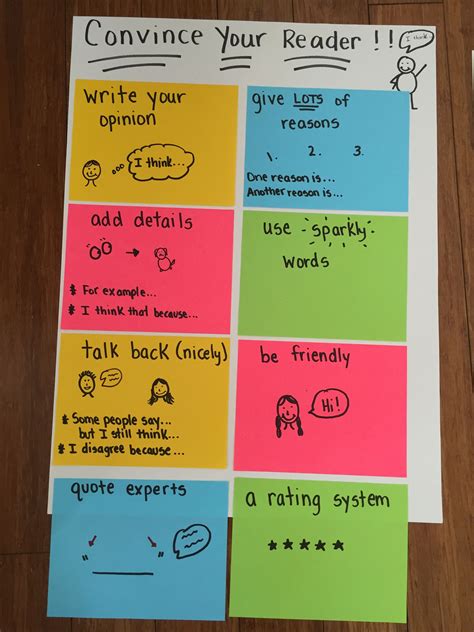 Convince Your Reader !!
I think
write your
opinion
I think...
give LOTS of
reasons
1. 2. 3.
One reason is...
Another reason is...
add details
* For example...
* I think that because...
use sparkly
words
talk back (nicely)
* Some people say...
but I still think...
* I disagree because...
be friendly
Hi!
quote experts
" "
a rating system